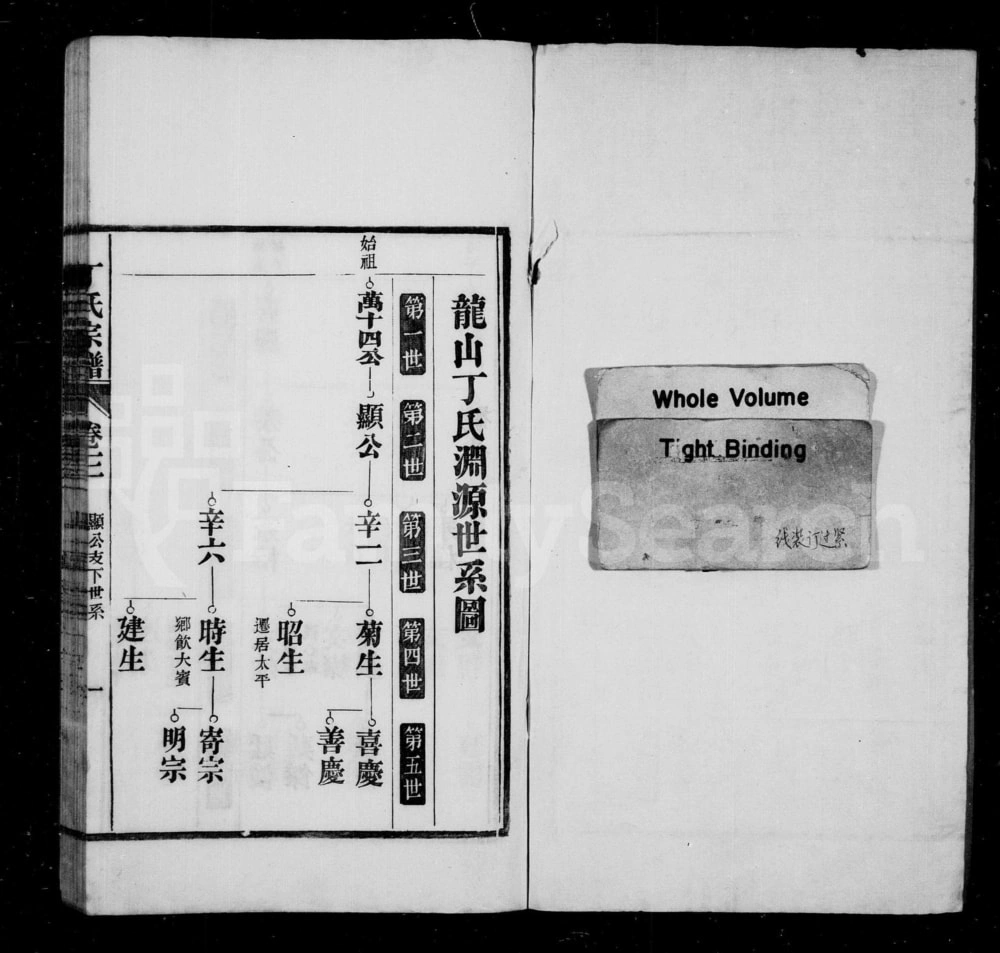 龍山丁氏淵源世系圖
第一世
第二世
第三世
第四世
第五世
始祖
萬十四公
顯公
辛二
菊生
喜慶
善慶
昭生
遷居太平
辛六
時生
鄉飲大賓
寄宗
明宗
建生
丁氏宗譜
顯公支下世系
一
Whole Volume
Tight Binding
线装订过紧
FamilySearch